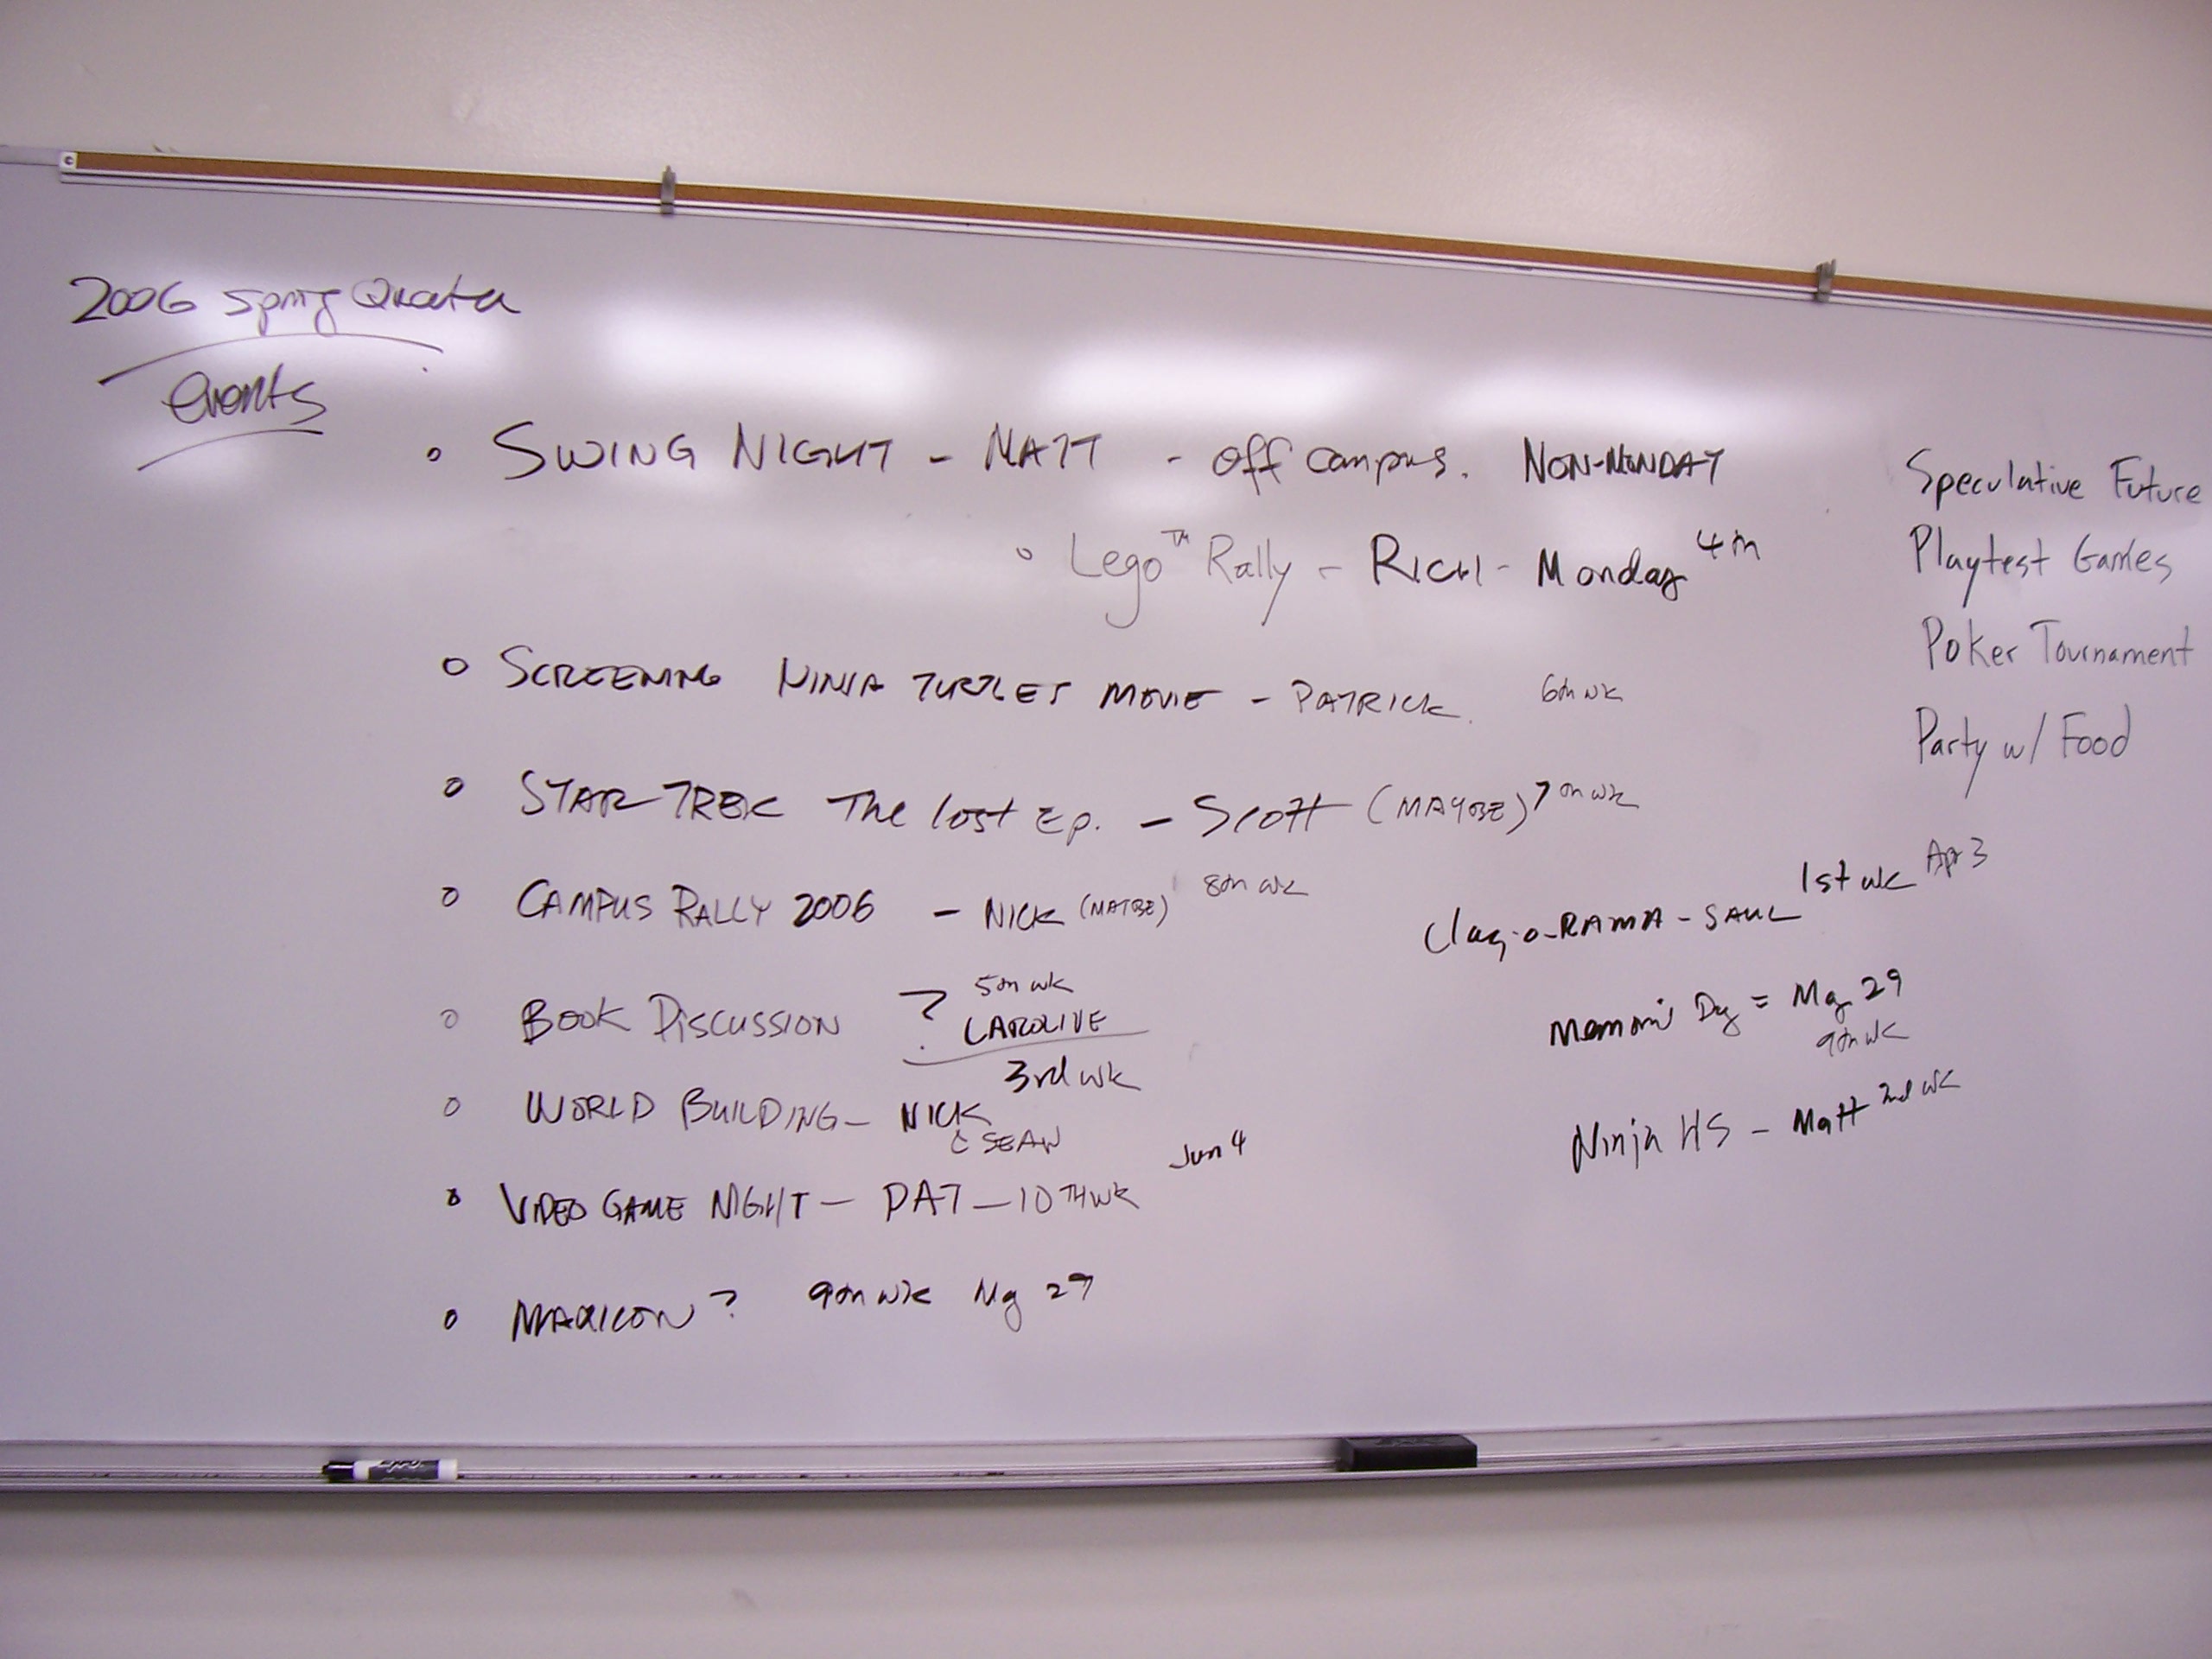 2006 Spring Quarter
events
o SWING NIGHT - MATT - off campus. NON-MONDAY
o Lego™ Rally - RICH - Monday 4th
o SCREENING NINJA TURTLES MOVIE - PATRICK. 6th wk
o STAR TREK The lost Ep. - Scott (MAYBE) 7th wk
o CAMPUS RALLY 2006 - NICK (MAYBE) 8th wk
o BOOK DISCUSSION ? CAROLINE 5th wk
o WORLD BUILDING - NICK & SEAN 3rd wk
o VIDEO GAME NIGHT - PAT - 10TH WK Jun 4
o MAXICON? 9th wk My 29
Speculative Future
Playtest Games
Poker Tournament
Party w/ Food
Clay-o-RAMA - SAUL 1st wk Apr 3
Day = My 29
9th wk
Ninja HS - Matt 2nd wk